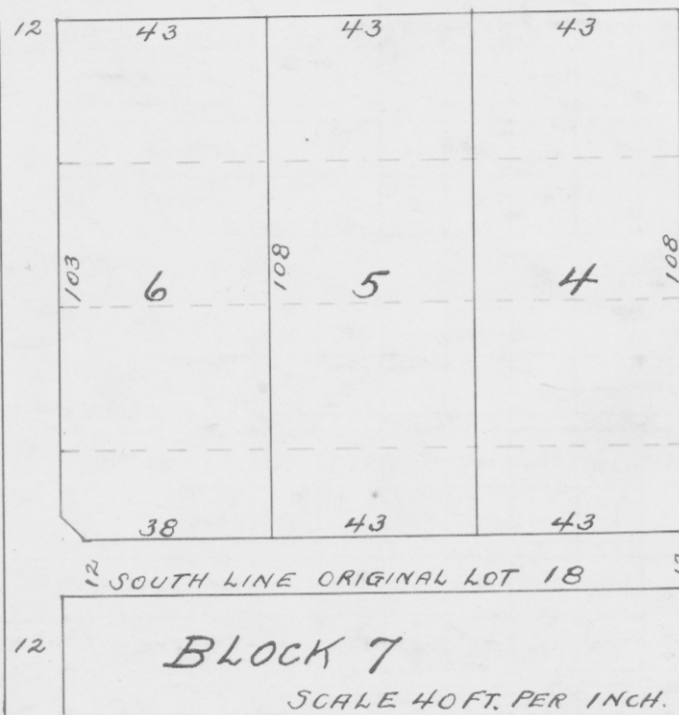 12 43 43 43
103 6 108 5 4 108
38 43 43
12 SOUTH LINE ORIGINAL LOT 18
12 BLOCK 7
SCALE 40 FT. PER INCH.